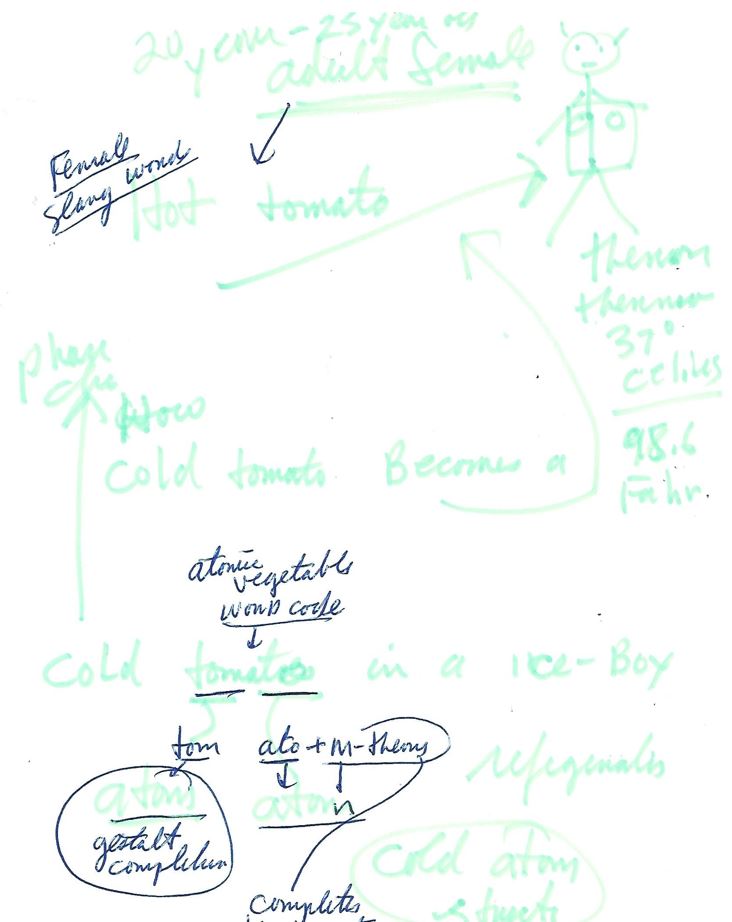 20 year - 25 year
adult female
Female
slang word
Hot tomato
37°
celius
98.6
Fahr.
phase
How
cold tomato Becomes a
atomic
vegetable
word code
cold tomatoes in a ice-Box
tom ato + M-theory
atom atom
gestalt
completion
cold atom
completes